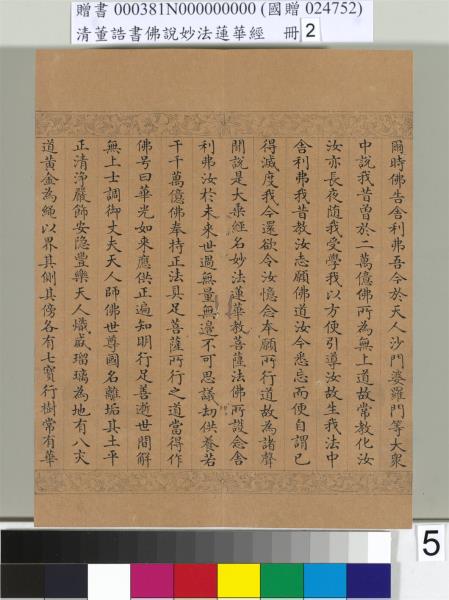 贈書 000381N000000000 (國贈 024752)
清董誥書佛說妙法蓮華經 冊 2
爾時佛告舍利弗吾今於天人沙門婆羅門等大衆
中說我昔曾於二萬億佛所為無上道故常教化汝
汝亦長夜隨我受學我以方便引導汝故生我法中
舍利弗我昔教汝志願佛道汝今悉忘而便自謂已
得滅度我今還欲令汝憶念本願所行道故為諸聲
聞說是大乘經名妙法蓮華教菩薩法佛所護念舍
利弗汝於未來世過無量無邊不可思議劫供養若
干千萬億佛奉持正法具足菩薩所行之道當得作
佛号曰華光如來應供正遍知明行足善逝世間解
無上士調御丈夫天人師佛世尊國名離垢其土平
正清淨嚴飾安隐豐樂天人熾盛瑠璃為地有八交
道黃金為繩以界其側其傍各有七寶行樹常有華
5